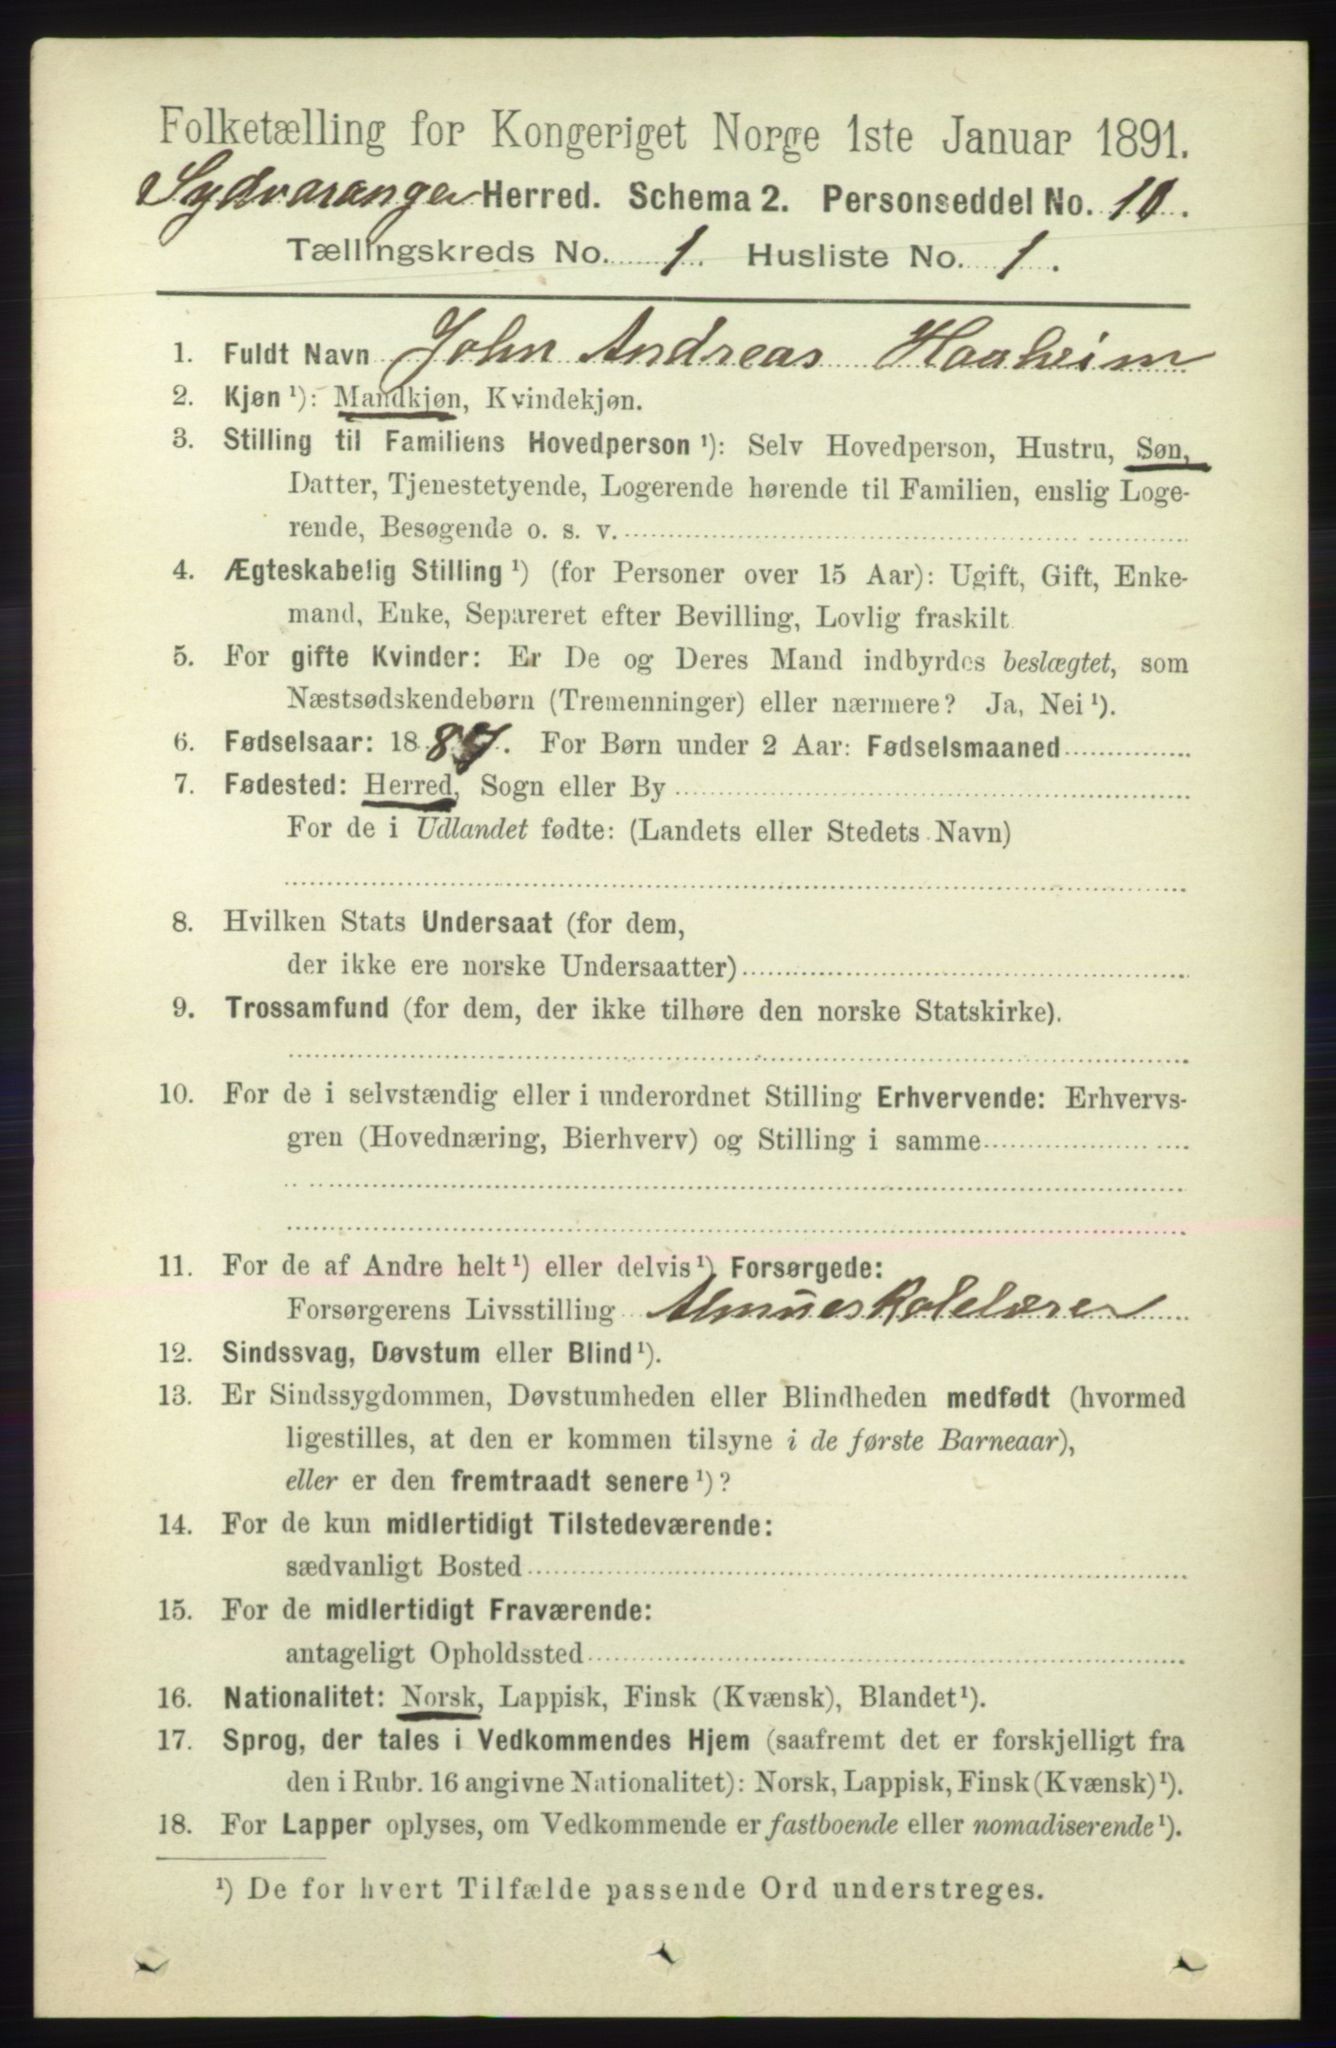 Folketælling for Kongeriget Norge 1ste Januar 1891.
Sydvaranger Herred. Schema 2. Personseddel No. 10.
Tællingskreds No. 1. Husliste No. 1.
1. Fuldt Navn John Andreas Haaheim
2. Kjøn ¹): Mandkjøn, Kvindekjøn.
3. Stilling til Familiens Hovedperson ¹): Selv Hovedperson, Hustru, Søn,
Datter, Tjenestetyende, Logerende hørende til Familien, enslig Loge-
rende, Besøgende o. s. v.
4. Ægteskabelig Stilling ¹) (for Personer over 15 Aar): Ugift, Gift, Enke-
mand, Enke, Separeret efter Bevilling, Lovlig fraskilt
5. For gifte Kvinder: Er De og Deres Mand indbyrdes beslægtet, som
Næstsødskendebørn (Tremenninger) eller nærmere? Ja, Nei ¹).
6. Fødselsaar: 1887. For Børn under 2 Aar: Fødselsmaaned
7. Fødested: Herred, Sogn eller By
For de i Udlandet fødte: (Landets eller Stedets Navn)
8. Hvilken Stats Undersaat (for dem,
der ikke ere norske Undersaatter)
9. Trossamfund (for dem, der ikke tilhøre den norske Statskirke).
10. For de i selvstændig eller i underordnet Stilling Erhvervende: Erhvervs-
gren (Hovednæring, Bierhverv) og Stilling i samme
11. For de af Andre helt ¹) eller delvis ¹) Forsørgede:
Forsørgerens Livsstilling Almueskolelærer
12. Sindssvag, Døvstum eller Blind ¹).
13. Er Sindssygdommen, Døvstumheden eller Blindheden medfødt (hvormed
ligestilles, at den er kommen tilsyne i de første Barneaar),
eller er den fremtraadt senere ¹)?
14. For de kun midlertidigt Tilstedeværende:
sædvanligt Bosted
15. For de midlertidigt Fraværende:
antageligt Opholdssted
16. Nationalitet: Norsk, Lappisk, Finsk (Kvænsk), Blandet ¹).
17. Sprog, der tales i Vedkommendes Hjem (saafremt det er forskjelligt fra
den i Rubr. 16 angivne Nationalitet): Norsk, Lappisk, Finsk (Kvænsk) ¹).
18. For Lapper oplyses, om Vedkommende er fastboende eller nomadiserende ¹).
¹) De for hvert Tilfælde passende Ord understreges.